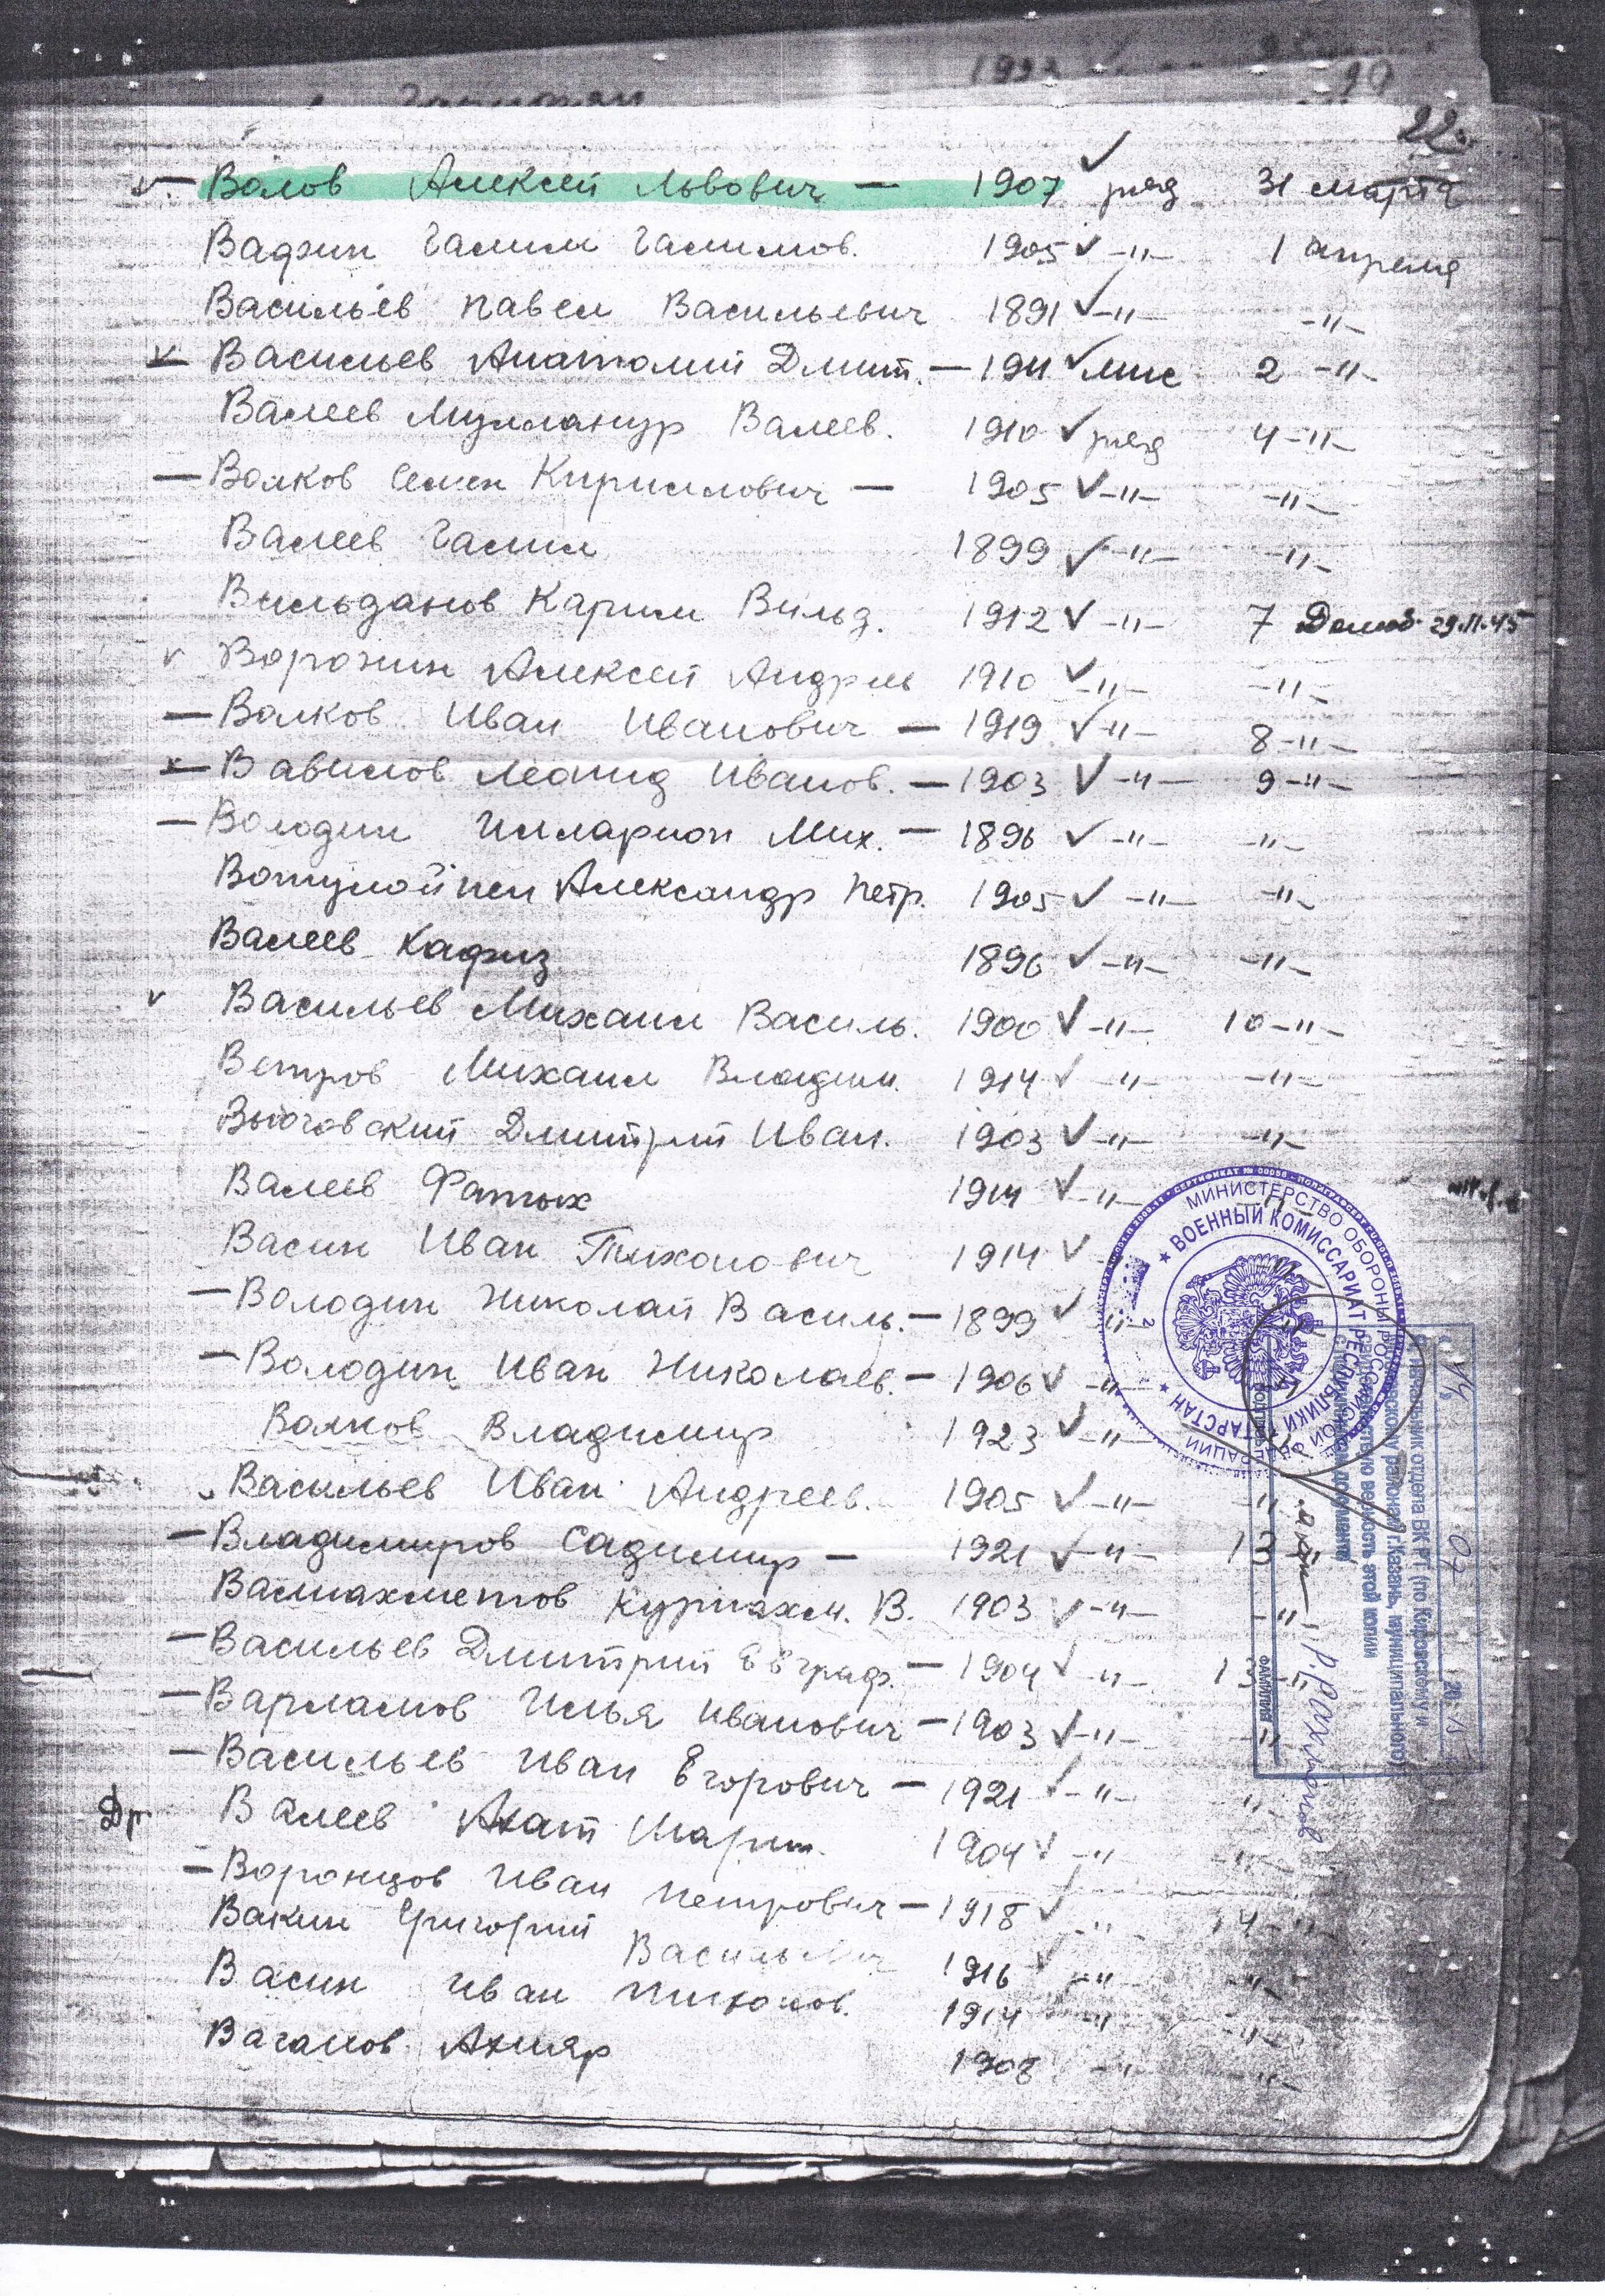 22.
Волов Алексей Львович — 1907 ✓ ряд 31 марта
Вафин Галим Галимов. 1905 ✓ -"- 1 апреля
Васильев Павел Васильевич 1891 ✓ -"- -"-
Васильев Анатолий Дмит. — 1911 ✓ 2 -"-
Валеев Мулланур Валеев. 1910 ✓ ряд 4 -"-
— Волков Семен Кириллович — 1905 ✓ -"- -"-
Валеев Галим 1899 ✓ -"- -"-
Вильданов Карим Вильд. 1912 ✓ -"- 7 Демоб. 29.11.45
v Воронин Алексей Андрее 1910 ✓ -"- -"-
— Волков Иван Иванович — 1919 ✓ -"- 8 -"-
— Вавилов Леонид Иванов. — 1903 ✓ -"- 9 -"-
— Володин Илларион Мих. — 1896 ✓ -"- -"-
Александр Петр. 1905 ✓ -"- -"-
Валеев Хафиз 1896 ✓ -"- -"-
v Васильев Михаил Василь. 1900 ✓ -"- 10 -"-
Ветров Михаил Владим. 1914 ✓ -"- -"-
Вьюговский Дмитрий Иван. 1903 ✓ -"- -"-
Валеев Фатых 1914 ✓ -"-
Васин Иван Тихонович 1914 ✓
— Володин Николай Василь. — 1899 ✓ -"-
— Володин Иван Николаев. — 1906 ✓ -"-
Волков Владимир 1923 ✓ -"-
Васильев Иван Андреев. 1905 ✓ -"- -"-
— Владимиров Садимир — 1921 ✓ -"- 12
Валиахметов Курмахм. В. 1903 ✓ -"- -"-
— Васильев Дмитрий Евграф. — 1904 ✓ -"- 13 -"-
— Варламов Илья Иванович — 1903 ✓ -"- -"-
— Васильев Иван Егорович — 1921 ✓ -"- -"-
Др. Валеев Ахат Шарип. 1904 ✓ -"- -"-
— Воронцов Иван Петрович — 1918 ✓ -"- 14 -"-
Вакин Григорий Васильевич 1916 ✓ -"- -"-
Васин Иван Тихонов. 1914 -"- -"-
Ваганов Ахияр 1908 -"- -"-
МИНИСТЕРСТВО ОБОРОНЫ РОССИЙСКОЙ ФЕДЕРАЦИИ
ВОЕННЫЙ КОМИССАРИАТ РЕСПУБЛИКИ ТАТАРСТАН
2
14 07
Начальник отдела ВК РТ (по Кировскому и
Московскому районам г.Казань, муниципального)
свидетельствую верность этой копии
с подлинным документом
фамилия